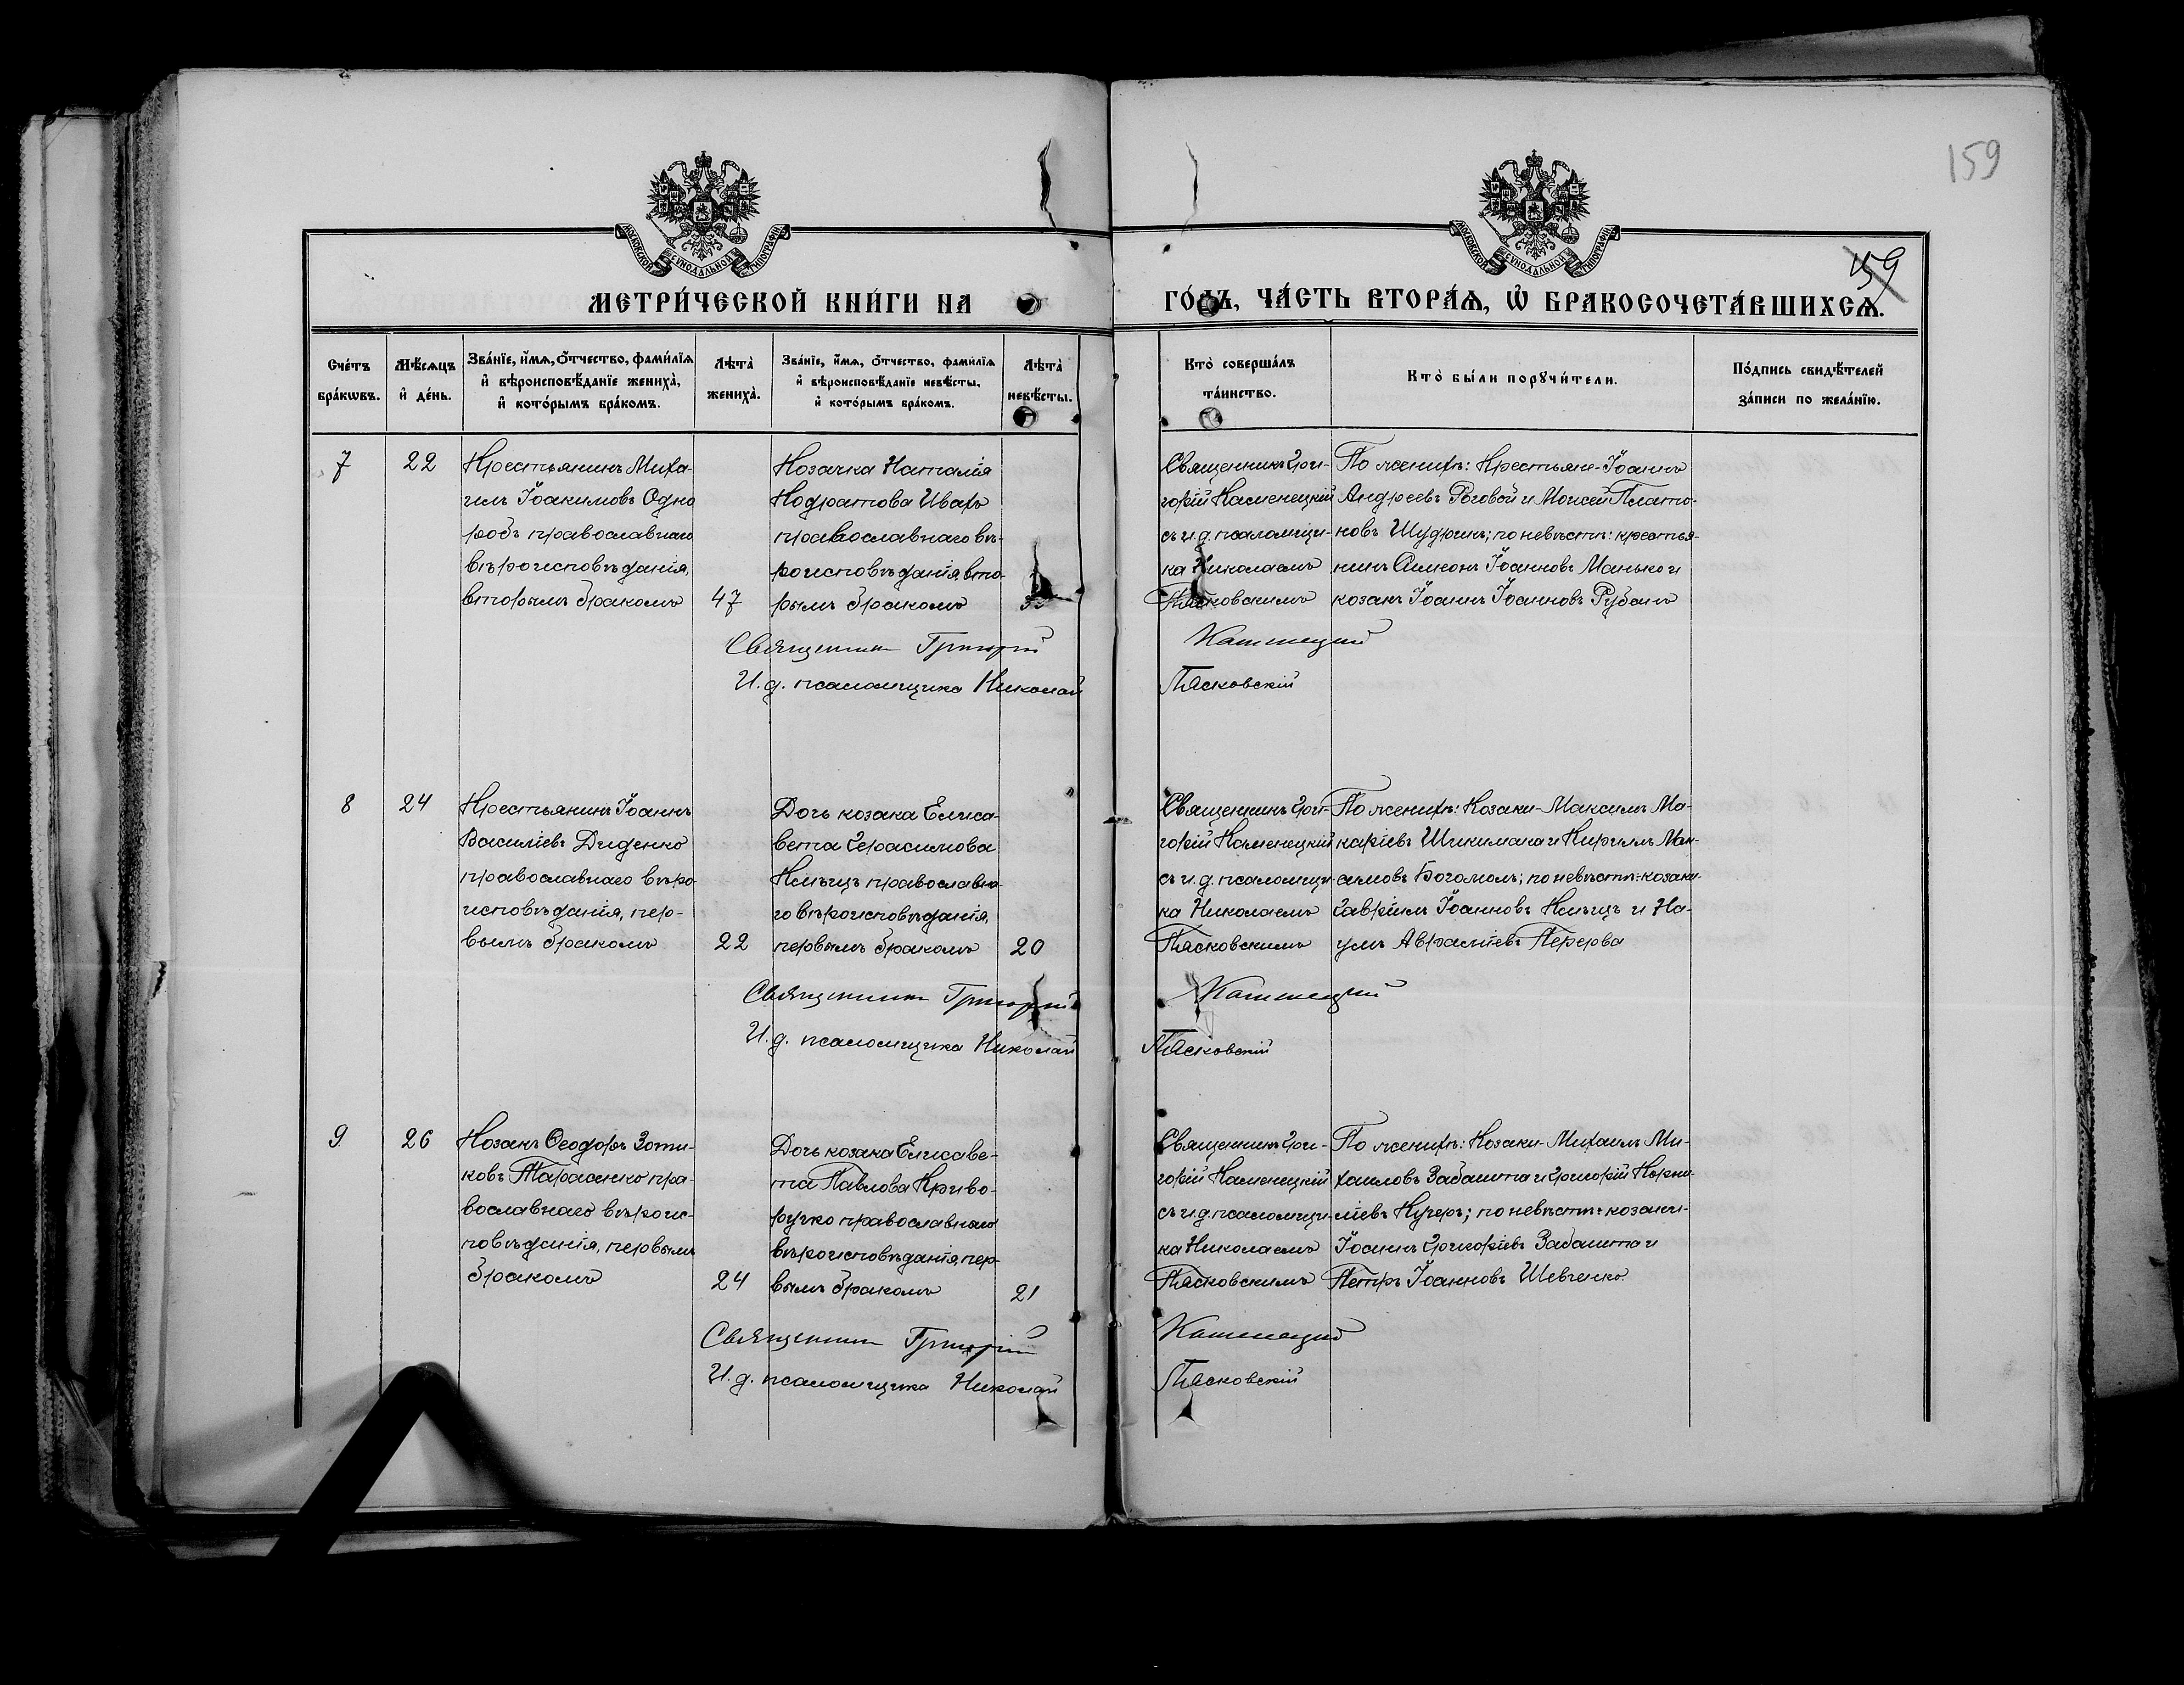 159
159
МОСКОВСКОЙ СѴНОДАЛЬНОЙ ТИПОГРАФІИ
МОСКОВСКОЙ СѴНОДАЛЬНОЙ ТИПОГРАФІИ
МЕТРИ́ЧЕСКОЙ КНИ́ГИ НА
ГО́ДЪ, ЧА́СТЬ ВТОРА́Ѧ, Ѡ҆ БРАКОСОЧЕТА́ВШИХСѦ.
Сче́тъ бра́кѡвъ.
Мѣ́сѧцъ и҆ де́нь.
Зва́нїе, и҆́мѧ, ѻ҆́тчество, фами́лїѧ
и҆ вѣроисповѣ́данїе жениха̀,
и҆ кото́рымъ бра́комъ.
Лѣта̀ жениха̀.
Зва́нїе, и҆́мѧ, ѻ҆́тчество, фами́лїѧ
и҆ вѣроисповѣ́данїе невѣ́сты,
и҆ кото́рымъ бра́комъ.
Лѣта̀ невѣ́сты.
Кто̀ соверша́лъ
та́инство.
Кто̀ бы́ли порꙋчи́тели.
По́дпись свидѣ́телей
за́писи по жела́нїю.
7
22
Крестьянинъ Миха-
илъ Іоакимовъ Одно
робъ православнаго
вѣроисповѣданія,
вторымъ бракомъ
47
Козачка Наталія
Кодратова Ивахъ
православнаго вѣ-
роисповѣданія, вто-
рымъ бракомъ
Священникъ Гри-
горій Каменецкій
съ и.д. псаломщи-
ка Николаемъ
Пясковскимъ
По женихѣ: Крестьяне-Іоаннъ
Андреевъ Роговой и Моисей Плато-
новъ Шудрикъ; по невѣстѣ: крестья-
нинъ Симеонъ Іоанновъ Манько и
козакъ Іоаннъ Іоанновъ Рубанъ
Священникъ Григорій Каменецкій
И.д. псаломщика Николай Пясковскій
8
24
Крестьянинъ Іоаннъ
Василіевъ Диденко
православнаго вѣро-
исповѣданія, пер-
вымъ бракомъ
22
Дочь козака Елиса-
вета Герасимова
Кмѣцъ православна-
го вѣроисповѣданія,
первымъ бракомъ
20
Священникъ Гри-
горій Каменецкій
съ и.д. псаломщи-
ка Николаемъ
Пясковскимъ
По женихѣ: Козаки-Максимъ Ма-
каріевъ Шикимака и Кириллъ Мак-
симовъ Богомолъ; по невѣстѣ: козаки-
Гавріилъ Іоанновъ Кмѣцъ и На-
умъ Авраміевъ Перерва
Священникъ Григорій Каменецкій
И.д. псаломщика Николай Пясковскій
9
26
Козакъ Ѳеодоръ Зоти-
ковъ Тарасенко пра-
вославнаго вѣроис-
повѣданія, первымъ
бракомъ
24
Дочь козака Елисаве-
та Павлова Криво-
ручко православнаго
вѣроисповѣданія, пер-
вымъ бракомъ
21
Священникъ Гри-
горій Каменецкій
съ и.д. псаломщи-
ка Николаемъ
Пясковскимъ
По женихѣ: Козаки-Михаилъ Ми-
хаиловъ Забашта и Григорій Корни-
ліевъ Кучеръ; по невѣстѣ: козаки-
Іоаннъ Григоріевъ Забашта и
Петръ Іоанновъ Шевченко
Священникъ Григорій Каменецкій
И.д. псаломщика Николай Пясковскій